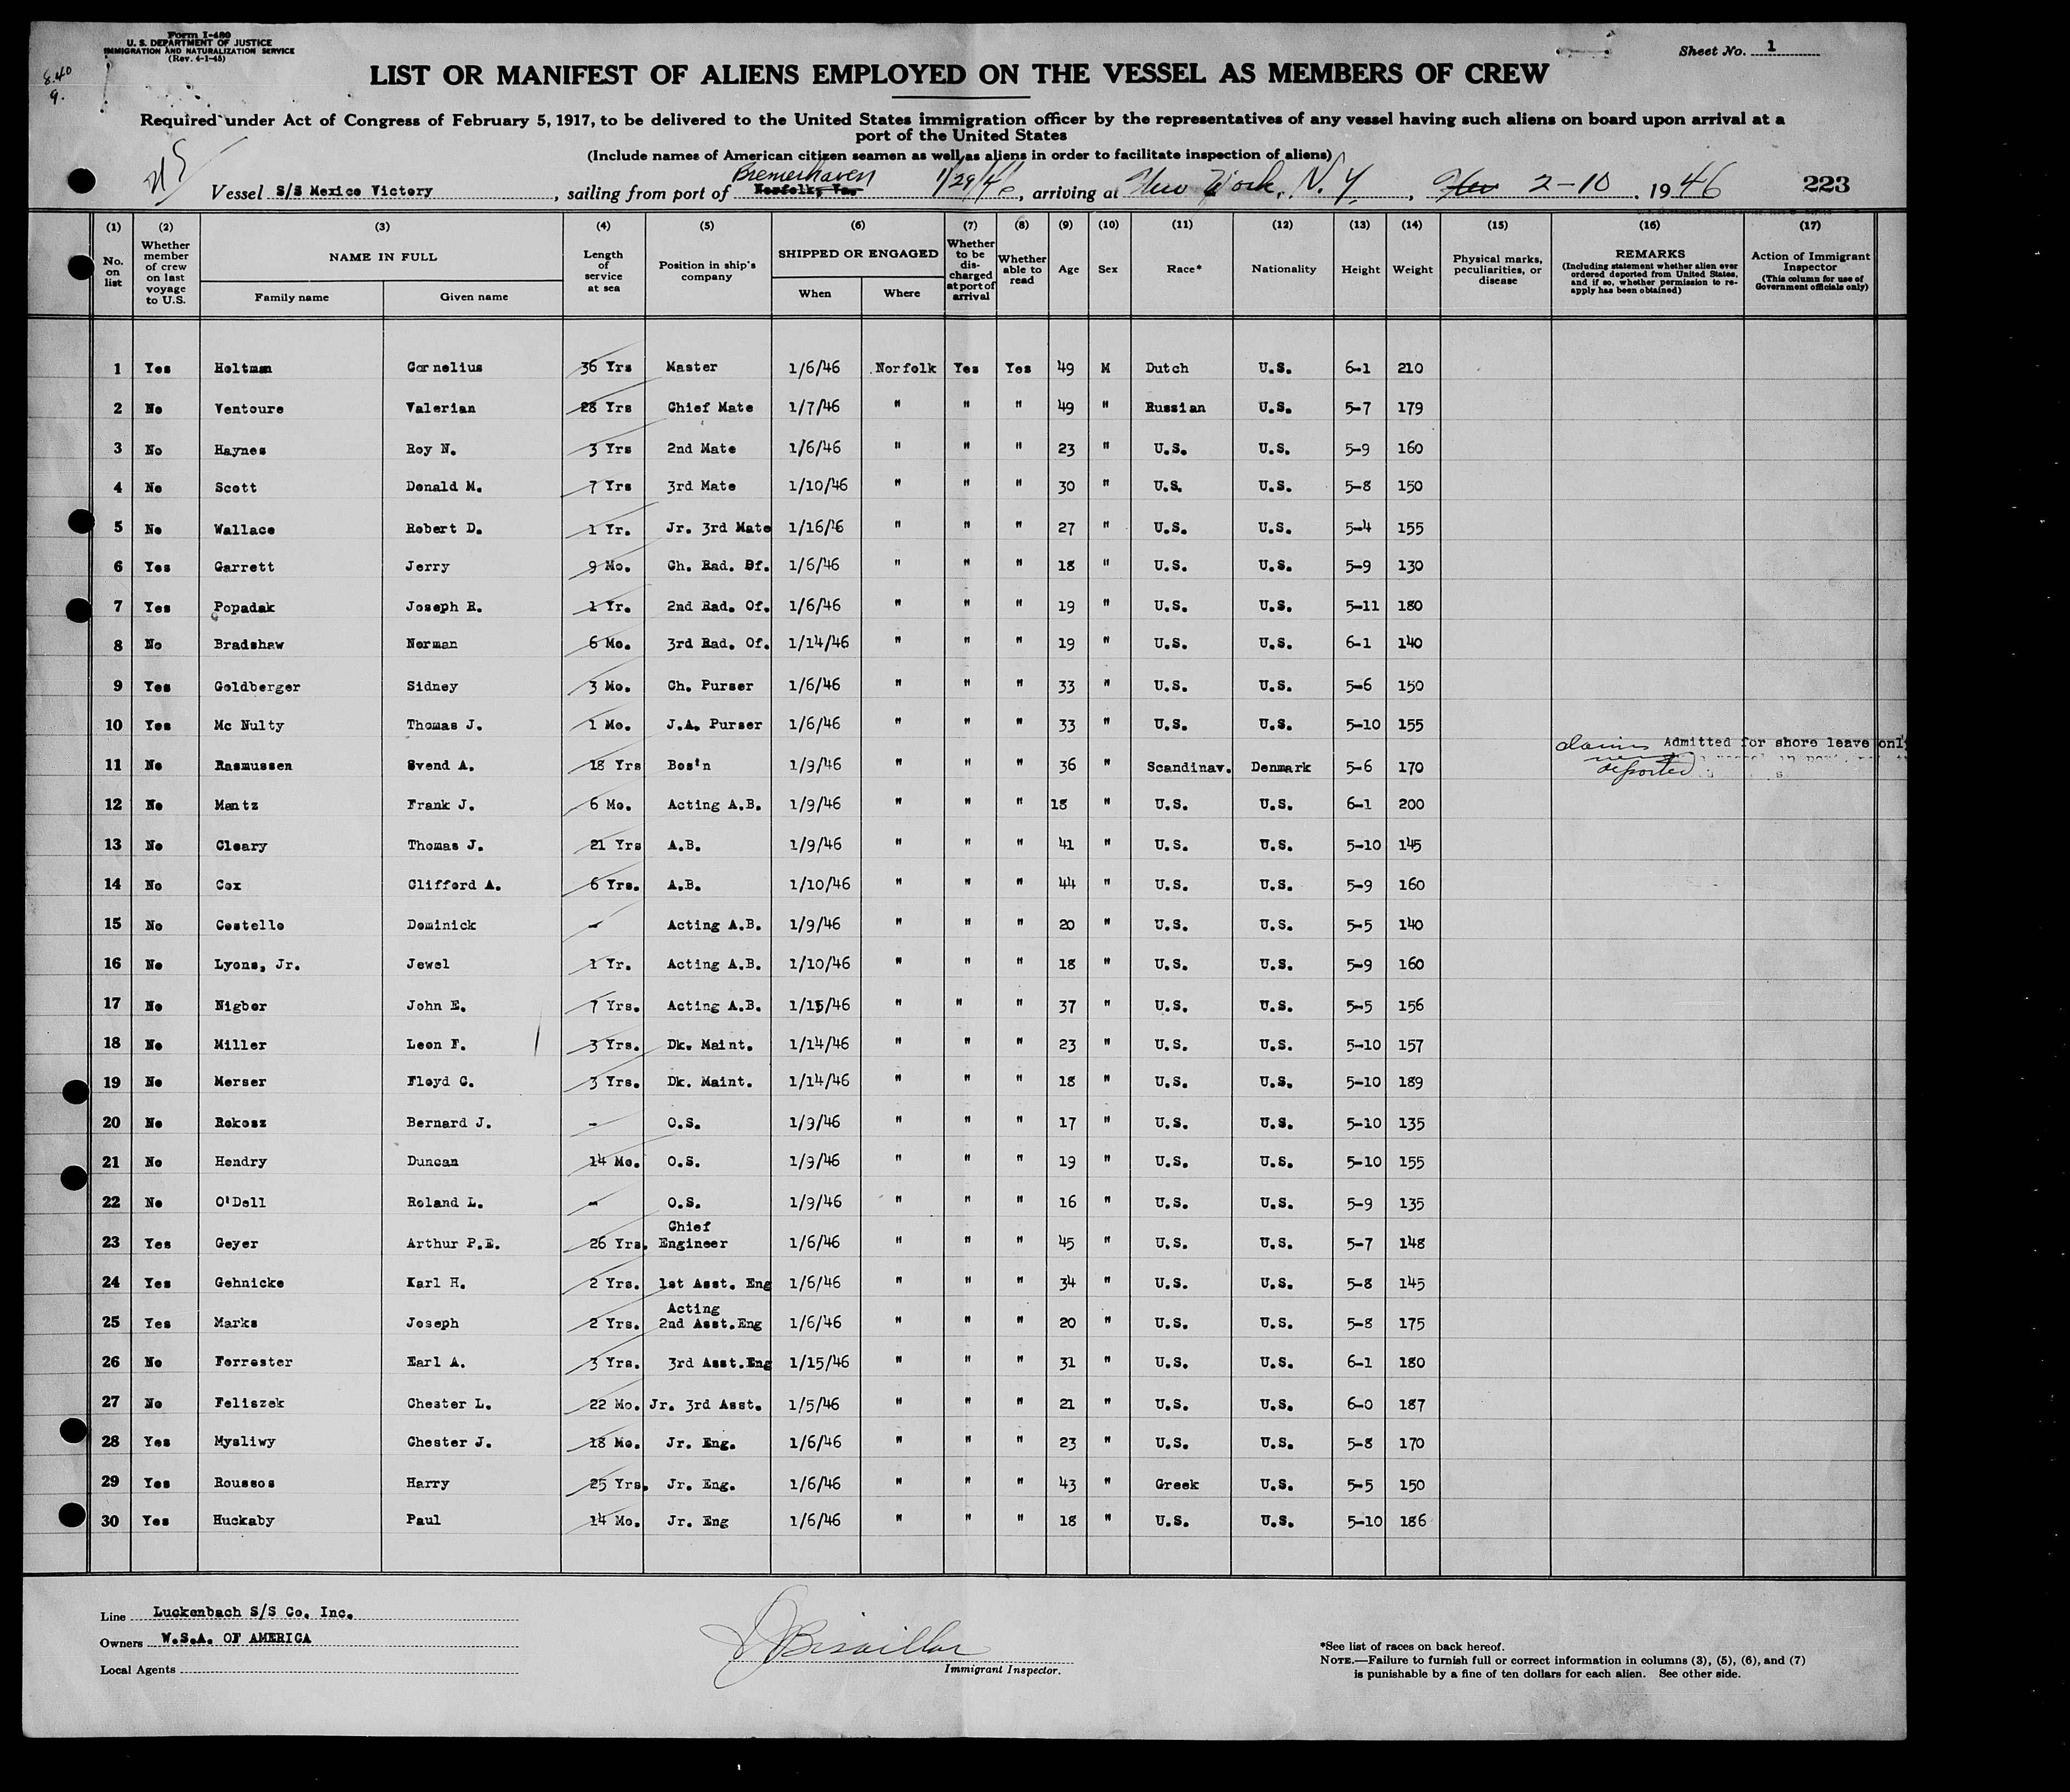 Form I-480
U. S. DEPARTMENT OF JUSTICE
IMMIGRATION AND NATURALIZATION SERVICE
(Rev. 4-1-45)
Sheet No. 1
LIST OR MANIFEST OF ALIENS EMPLOYED ON THE VESSEL AS MEMBERS OF CREW
Required under Act of Congress of February 5, 1917, to be delivered to the United States immigration officer by the representatives of any vessel having such aliens on board upon arrival at a
port of the United States
(Include names of American citizen seamen as well as aliens in order to facilitate inspection of aliens)
Bremerhaven 1/29/46
Vessel S/S Mexico Victory, sailing from port of Norfolk, Va., arriving at New York, N. Y., 2-10, 1946 223
(1) (2) (3) (4) (5) (6) (7) (8) (9) (10) (11) (12) (13) (14) (15) (16) (17)
No. on list
Whether member of crew on last voyage to U.S.
NAME IN FULL
Family name Given name
Length of service at sea
Position in ship's company
SHIPPED OR ENGAGED
When Where
Whether to be discharged at port of arrival
Whether able to read
Age
Sex
Race*
Nationality
Height
Weight
Physical marks, peculiarities, or disease
REMARKS
(Including statement whether alien ever ordered deported from United States, and if so, whether permission to re-apply has been obtained)
Action of Immigrant Inspector
(This column for use of Government officials only)
1 Yes Holtman Cornelius 36 Yrs Master 1/6/46 Norfolk Yes Yes 49 M Dutch U.S. 6-1 210
2 No Ventoure Valerian 28 Yrs Chief Mate 1/7/46 " " " 49 " Russian U.S. 5-7 179
3 No Haynes Roy N. 3 Yrs 2nd Mate 1/6/46 " " " 23 " U.S. U.S. 5-9 160
4 No Scott Donald M. 7 Yrs 3rd Mate 1/10/46 " " " 30 " U.S. U.S. 5-8 150
5 No Wallace Robert D. 1 Yr. Jr. 3rd Mate 1/16/'6 " " " 27 " U.S. U.S. 5-4 155
6 Yes Garrett Jerry 9 Mo. Ch. Rad. Of. 1/6/46 " " " 18 " U.S. U.S. 5-9 130
7 Yes Popadak Joseph R. 1 Yr. 2nd Rad. Of. 1/6/46 " " " 19 " U.S. U.S. 5-11 180
8 No Bradshaw Norman 6 Mo. 3rd Rad. Of. 1/14/46 " " " 19 " U.S. U.S. 6-1 140
9 Yes Goldberger Sidney 3 Mo. Ch. Purser 1/6/46 " " " 33 " U.S. U.S. 5-6 150
10 Yes Mc Nulty Thomas J. 1 Mo. J.A. Purser 1/6/46 " " " 33 " U.S. U.S. 5-10 155
11 No Rasmussen Svend A. 18 Yrs Bos'n 1/9/46 " " " 36 " Scandinav. Denmark 5-6 170 claims never deported Admitted for shore leave only
12 No Mantz Frank J. 6 Mo. Acting A.B. 1/9/46 " " " 18 " U.S. U.S. 6-1 200
13 No Cleary Thomas J. 21 Yrs A.B. 1/9/46 " " " 41 " U.S. U.S. 5-10 145
14 No Cox Clifford A. 6 Yrs. A.B. 1/10/46 " " " 44 " U.S. U.S. 5-9 160
15 No Costello Dominick - Acting A.B. 1/9/46 " " " 20 " U.S. U.S. 5-5 140
16 No Lyons, Jr. Jewel 1 Yr. Acting A.B. 1/10/46 " " " 18 " U.S. U.S. 5-9 160
17 No Nigbor John E. 7 Yrs. Acting A.B. 1/15/46 " " " 37 " U.S. U.S. 5-5 156
18 No Miller Leon F. 3 Yrs. Dk. Maint. 1/14/46 " " " 23 " U.S. U.S. 5-10 157
19 No Merser Floyd C. 3 Yrs. Dk. Maint. 1/14/46 " " " 18 " U.S. U.S. 5-10 189
20 No Rokosz Bernard J. - O.S. 1/9/46 " " " 17 " U.S. U.S. 5-10 135
21 No Hendry Duncan 14 Mo. O.S. 1/9/46 " " " 19 " U.S. U.S. 5-10 155
22 No O'Dell Roland L. - O.S. 1/9/46 " " " 16 " U.S. U.S. 5-9 135
23 Yes Geyer Arthur P.E. 26 Yrs. Chief Engineer 1/6/46 " " " 45 " U.S. U.S. 5-7 148
24 Yes Gehnicke Karl H. 2 Yrs. 1st Asst. Eng 1/6/46 " " " 34 " U.S. U.S. 5-8 145
25 Yes Marks Joseph 2 Yrs. Acting 2nd Asst.Eng 1/6/46 " " " 20 " U.S. U.S. 5-8 175
26 No Forrester Earl A. 3 Yrs. 3rd Asst.Eng 1/15/46 " " " 31 " U.S. U.S. 6-1 180
27 No Feliszek Chester L. 22 Mo. Jr. 3rd Asst. 1/5/46 " " " 21 " U.S. U.S. 6-0 187
28 Yes Mysliwy Chester J. 18 Mo. Jr. Eng. 1/6/46 " " " 23 " U.S. U.S. 5-8 170
29 Yes Roussos Harry 25 Yrs. Jr. Eng. 1/6/46 " " " 43 " Greek U.S. 5-5 150
30 Yes Huckaby Paul 14 Mo. Jr. Eng 1/6/46 " " " 18 " U.S. U.S. 5-10 186
Line Luckenbach S/S Co. Inc.
Owners W.S.A. OF AMERICA
Local Agents
Immigrant Inspector.
*See list of races on back hereof.
NOTE.—Failure to furnish full or correct information in columns (3), (5), (6), and (7)
is punishable by a fine of ten dollars for each alien. See other side.